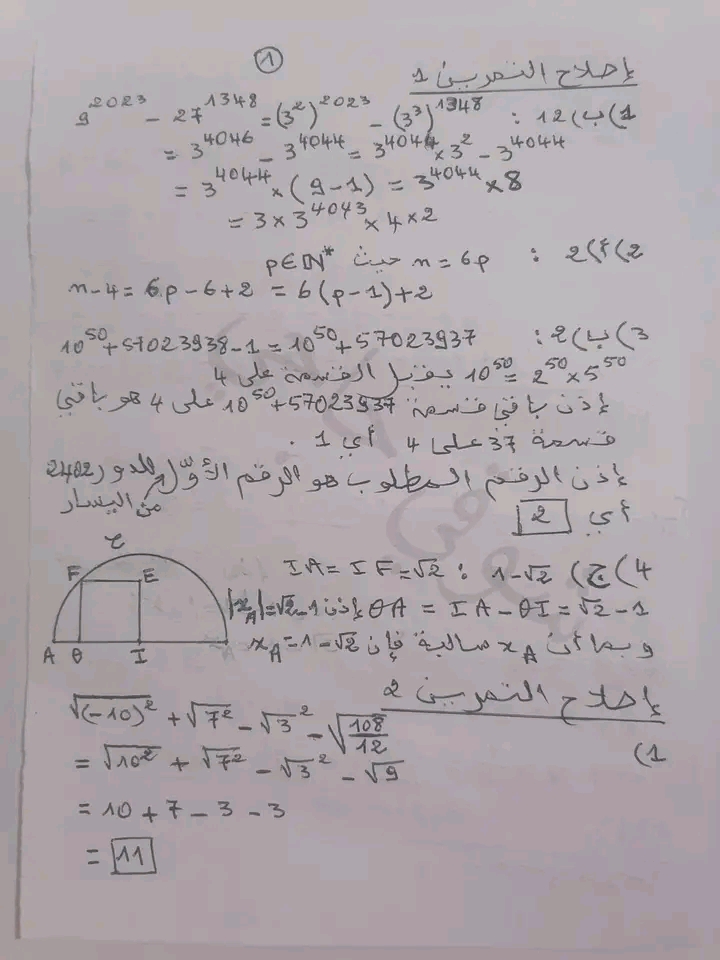 ①
إصلاح التمرين 1
1) ب) 12 : 9^2023 - 27^1348 = (3^2)^2023 - (3^3)^1348
= 3^4046 - 3^4044 = 3^4044 × 3^2 - 3^4044
= 3^4044 × (9-1) = 3^4044 × 8
= 3 × 3^4043 × 4 × 2
2) أ) 2 : n = 6p حيث p∈ℕ*
n-4 = 6p-6+2 = 6(p-1)+2
3) ب) 2 : 10^50+57023938-1 = 10^50+57023937
10^50 = 2^50 × 5^50 يقبل القسمة على 4
إذن باقي قسمة 10^50+57023937 على 4 هو باقي
قسمة 37 على 4 أي 1 .
إذن الرقم المطلوب هو الرقم الأوّل للدور 2402
من اليسار
أي 2
4) ج) 1-√2 : IA = IF = √2
θA = IA - θI = √2 - 1 إذن |x_A| = √2-1
و بما أن x_A سالبة فإن x_A = 1-√2
𝒞
F E
A θ I
إصلاح التمرين 2
1)
√(-10)^2 + √7^2 - √3^2 - √108/12
= √10^2 + √7^2 - √3^2 - √9
= 10 + 7 - 3 - 3
= 11